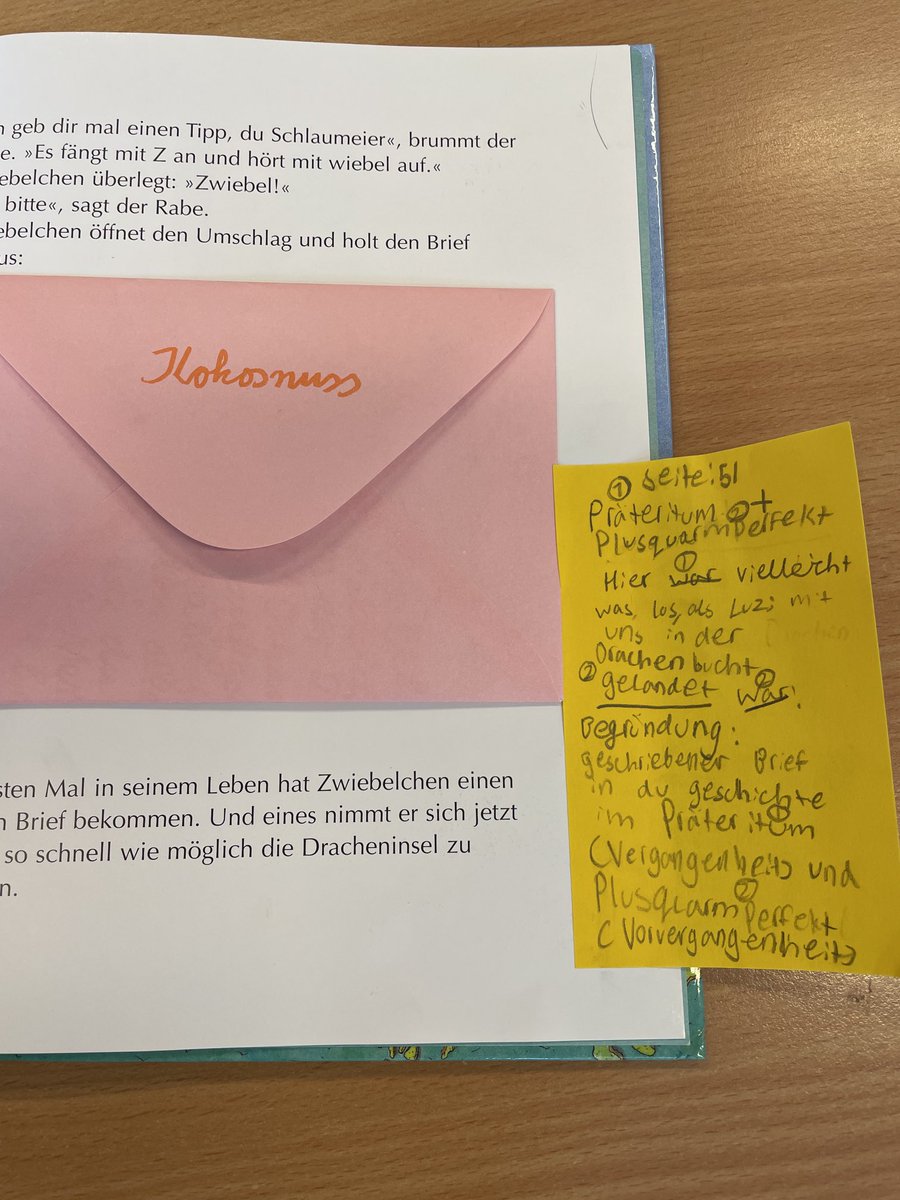 n geb dir mal einen Tipp, du Schlaumeier«, brummt der
e. »Es fängt mit Z an und hört mit wiebel auf.«
ebelchen überlegt: »Zwiebel!«
bitte«, sagt der Rabe.
ebelchen öffnet den Umschlag und holt den Brief
us:
Kokosnuss
sten Mal in seinem Leben hat Zwiebelchen einen
n Brief bekommen. Und eines nimmt er sich jetzt
so schnell wie möglich die Dracheninsel zu
n.
① Seite: 51
Präteritum ① +
Plusquarmperfekt ②
Hier war ① vielleicht
was los, als Luzi mit
uns in der Drachen
Drachenbucht
② gelandet war ②!
Begründung:
geschriebener Brief
in du geschichte
im Präteritum ①
(Vergangenheit) und
Plusquarmperfekt ②
(Vorvergangenheit)